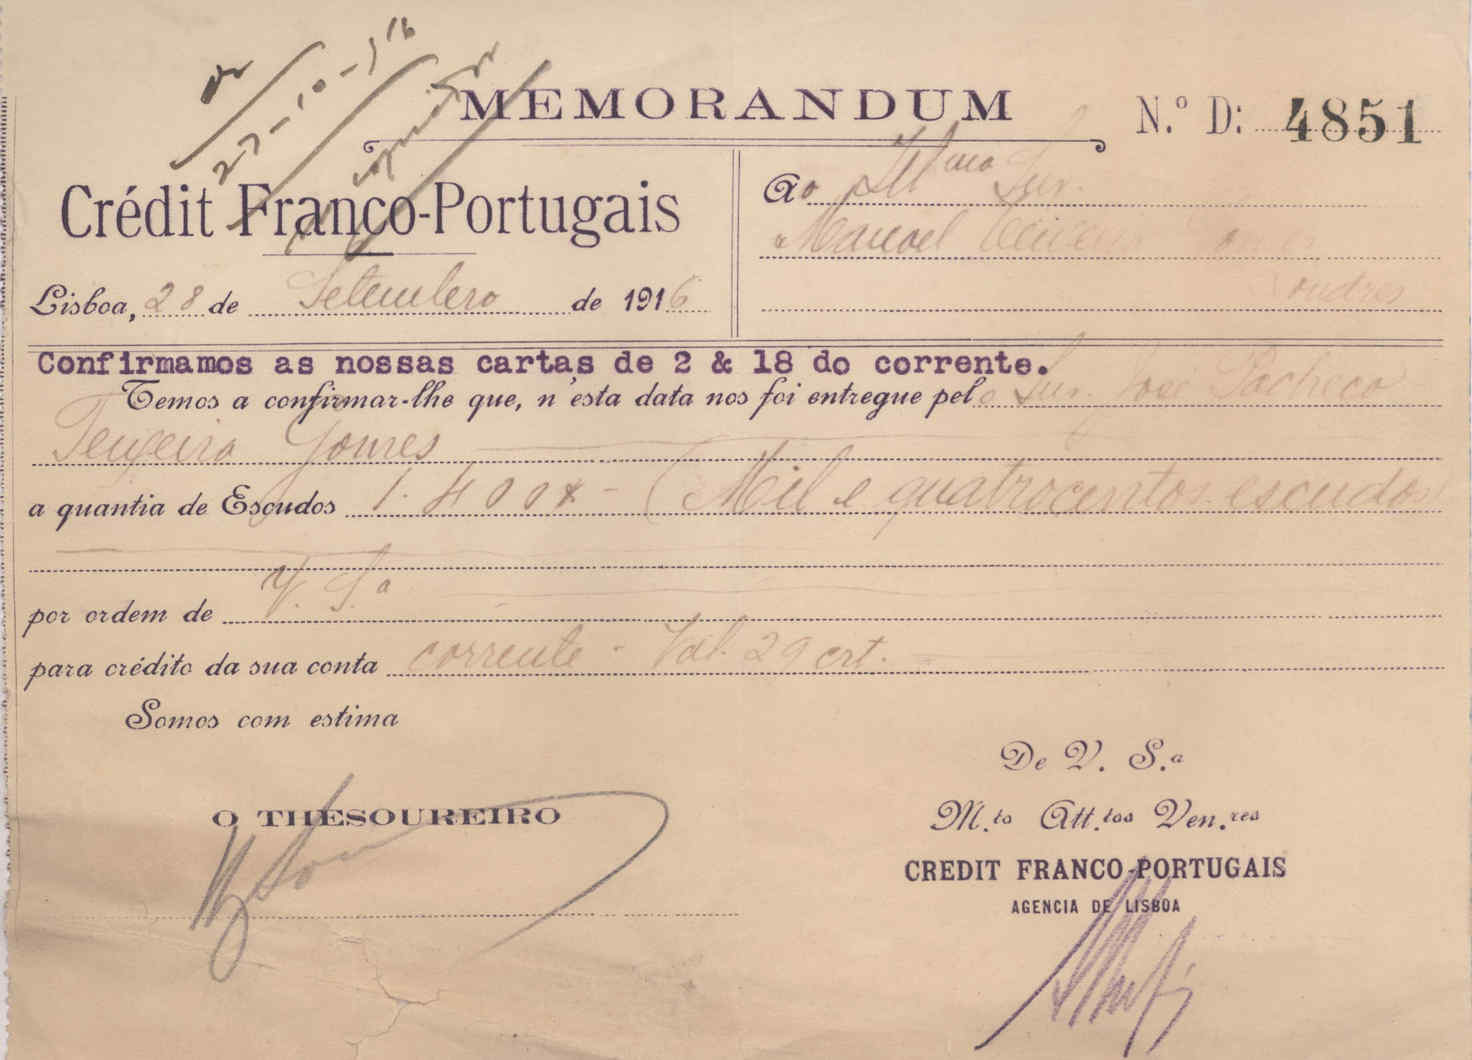 27-10-916
MEMORANDUM
N.º D: 4851
Crédit Franco-Portugais
Lisboa, 28 de Setembro de 1916
Ao Illmo Snr.
Manoel Teixeira Gomes
Londres
Confirmamos as nossas cartas de 2 & 18 do corrente.
Temos a confirmar-lhe que, n'esta data nos foi entregue pelo Snr. José Pacheco
Teixeira Gomes
a quantia de Escudos 1.400$ - (Mil e quatrocentos escudos)
por ordem de V. S.ª
para crédito da sua conta corrente - Val. 29 crt.
Somos com estima
De V. S.ª
M.to Att.tos Ven.res
O THESOUREIRO
CREDIT FRANCO-PORTUGAIS
AGENCIA DE LISBOA